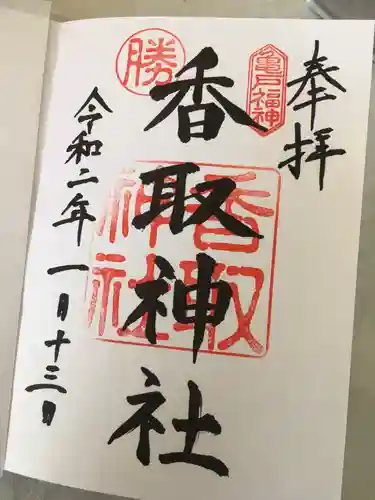 奉拝
亀戸福神
香取神社
香取神社
勝
令和二年一月十三日